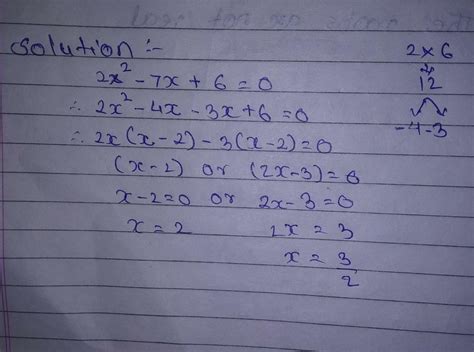 Solution :-
2x² - 7x + 6 = 0
∴ 2x² - 4x - 3x + 6 = 0
∴ 2x(x-2) - 3(x-2) = 0
(x-2) or (2x-3) = 0
x-2=0 or 2x-3=0
x = 2 2x = 3
x = 3
2
2 x 6
12
-4 -3